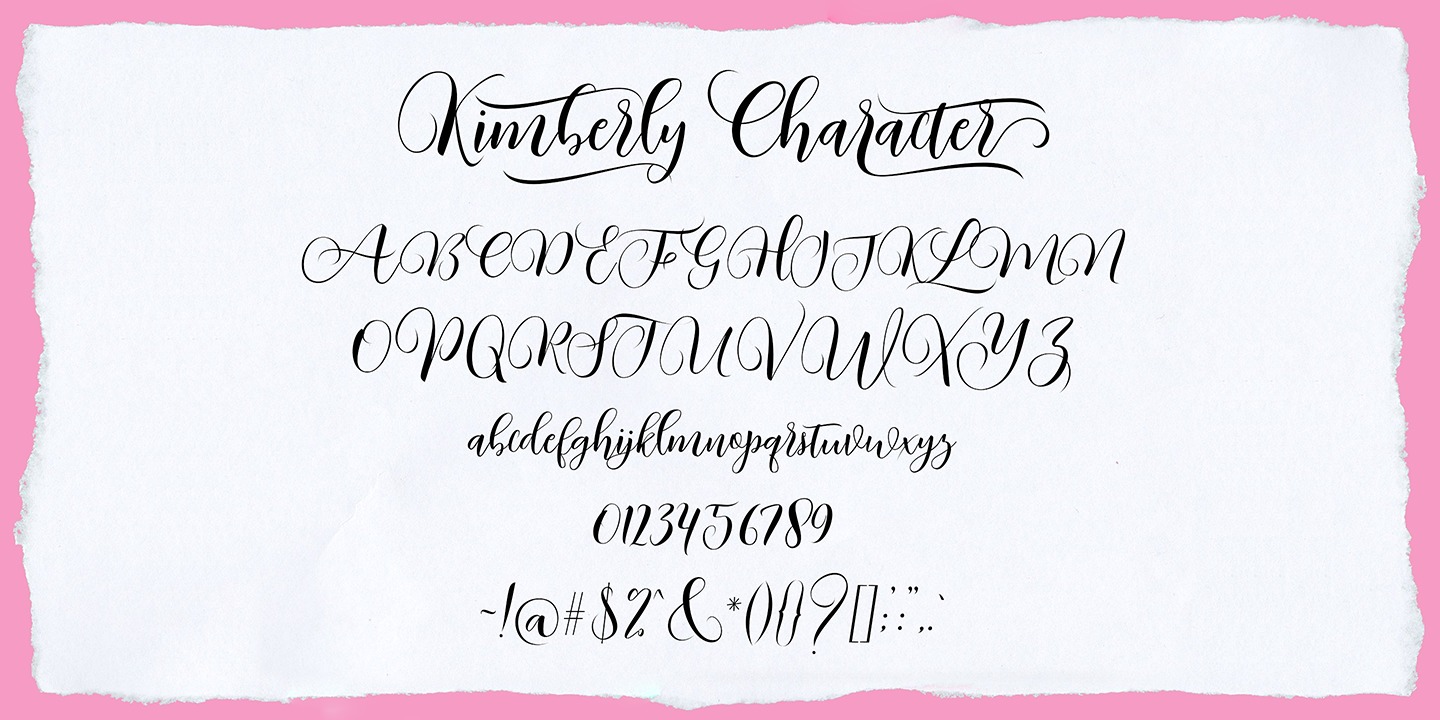 Kimberly Character
ABCDEFGHIJKLMN
OPQRSTUVWXYZ
abcdefghijklmnopqrstuvwxyz
0123456789
~!@#$%^&*(){}?[];':",.`